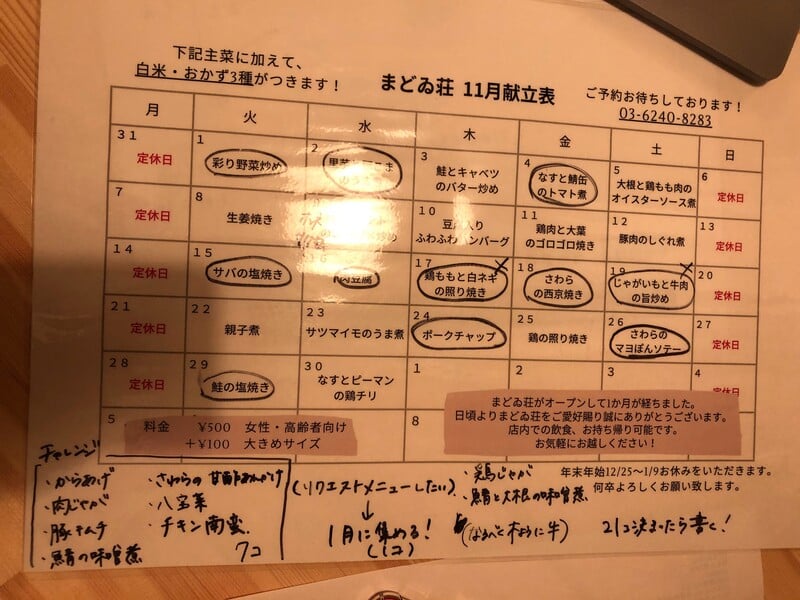 下記主菜に加えて、
白米・おかず3種がつきます！
まどゐ荘 11月献立表
ご予約お待ちしております！
03-6240-8283
月 火 水 木 金 土 日
31 定休日
1 彩り野菜炒め
2
3 鮭とキャベツ
のバター炒め
4 なすと鯖缶
のトマト煮
5 大根と鶏もも肉の
オイスターソース煮
6 定休日
7 定休日
8 生姜焼き
10
ふわふわハンバーグ
11 鶏肉と大葉
のゴロゴロ焼き
12 豚肉のしぐれ煮
13 定休日
14 定休日
15 サバの塩焼き
16 肉豆腐
17 鶏ももと白ネギ
の照り焼き
18 さわら
の西京焼き
19 じゃがいもと牛肉
の旨炒め
20 定休日
21 定休日
22 親子煮
23 サツマイモのうま煮
24 ポークチャップ
25 鶏の照り焼き
26 さわらの
マヨぽんソテー
27 定休日
28 定休日
29 鮭の塩焼き
30 なすとピーマン
の鶏チリ
1
2
3
4
5
料金 ¥500 女性・高齢者向け
＋¥100 大きめサイズ
8
まどゐ荘がオープンして1か月が経ちました。
日頃よりまどゐ荘をご愛好賜り誠にありがとうございます。
店内での飲食、お持ち帰り可能です。
お気軽にお越しください！
年末年始12/25～1/9お休みをいただきます。
何卒よろしくお願い致します。
チャレンジ
・からあげ
・肉じゃが
・豚キムチ
・鯖の味噌煮
・さわらの甘酢あんかけ
・八宝菜
・チキン南蛮
7コ
(リクエストメニューしたい)
↓
1月に集める！
(1コ)
・鶏じゃが
・鯖と大根の味噌煮
21コ決まったら書く！